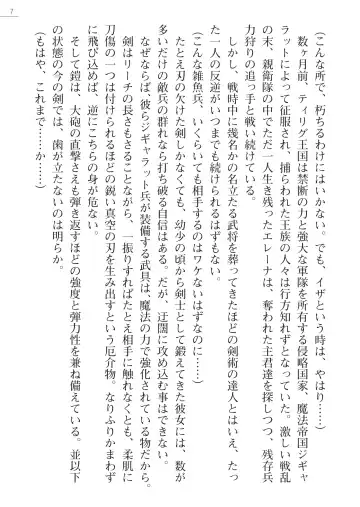 7
(こんな所で、朽ちるわけにはいかない。でも、イザという時は、やはり……)
数ヶ月前、ティリグ王国は禁断の力と強大な軍隊を所有する侵略国家、魔法帝国ジギャ
ラットによって征服され、捕らわれた王族の人々は行方知れずとなっていた。激しい戦乱
の末、親衛隊の中でただ一人生き残ったエレーナは、奪われた主君達を探しつつ、残存兵
力狩りの追っ手と戦い続けている。
しかし、戦時中に幾名かの名立たる武将を葬ってきたほどの剣術の達人とはいえ、たっ
た一人の反逆がいつまでも続けられるはずもない。
(こんな雑魚兵、いくらいても相手するのはワケないはずなのに……)
たとえ刃の欠けた剣しかなくても、幼少の頃から剣士として鍛えてきた彼女には、数が
多いだけの敵兵の群れなら打ち破る自信はある。だが、迂闊に攻め込む事はできない。
なぜならば、彼らジギャラット兵が装備する武具は、魔法の力で強化されている物だから。
剣はリーチの長さもさることながら、一振りすればたとえ相手に触れなくとも、柔肌に
刀傷の一つは付けられるほどの鋭い真空の刃を生み出すという厄介物。なりふりかまわず
に飛び込めば、逆にこちらの身が危ない。
そして鎧は、大砲の直撃さえも弾き返すほどの強度と弾力性を兼ね備えている。並以下
の状態の今の剣では、歯が立たないのは明らか。
(もはや、これまで……か?)